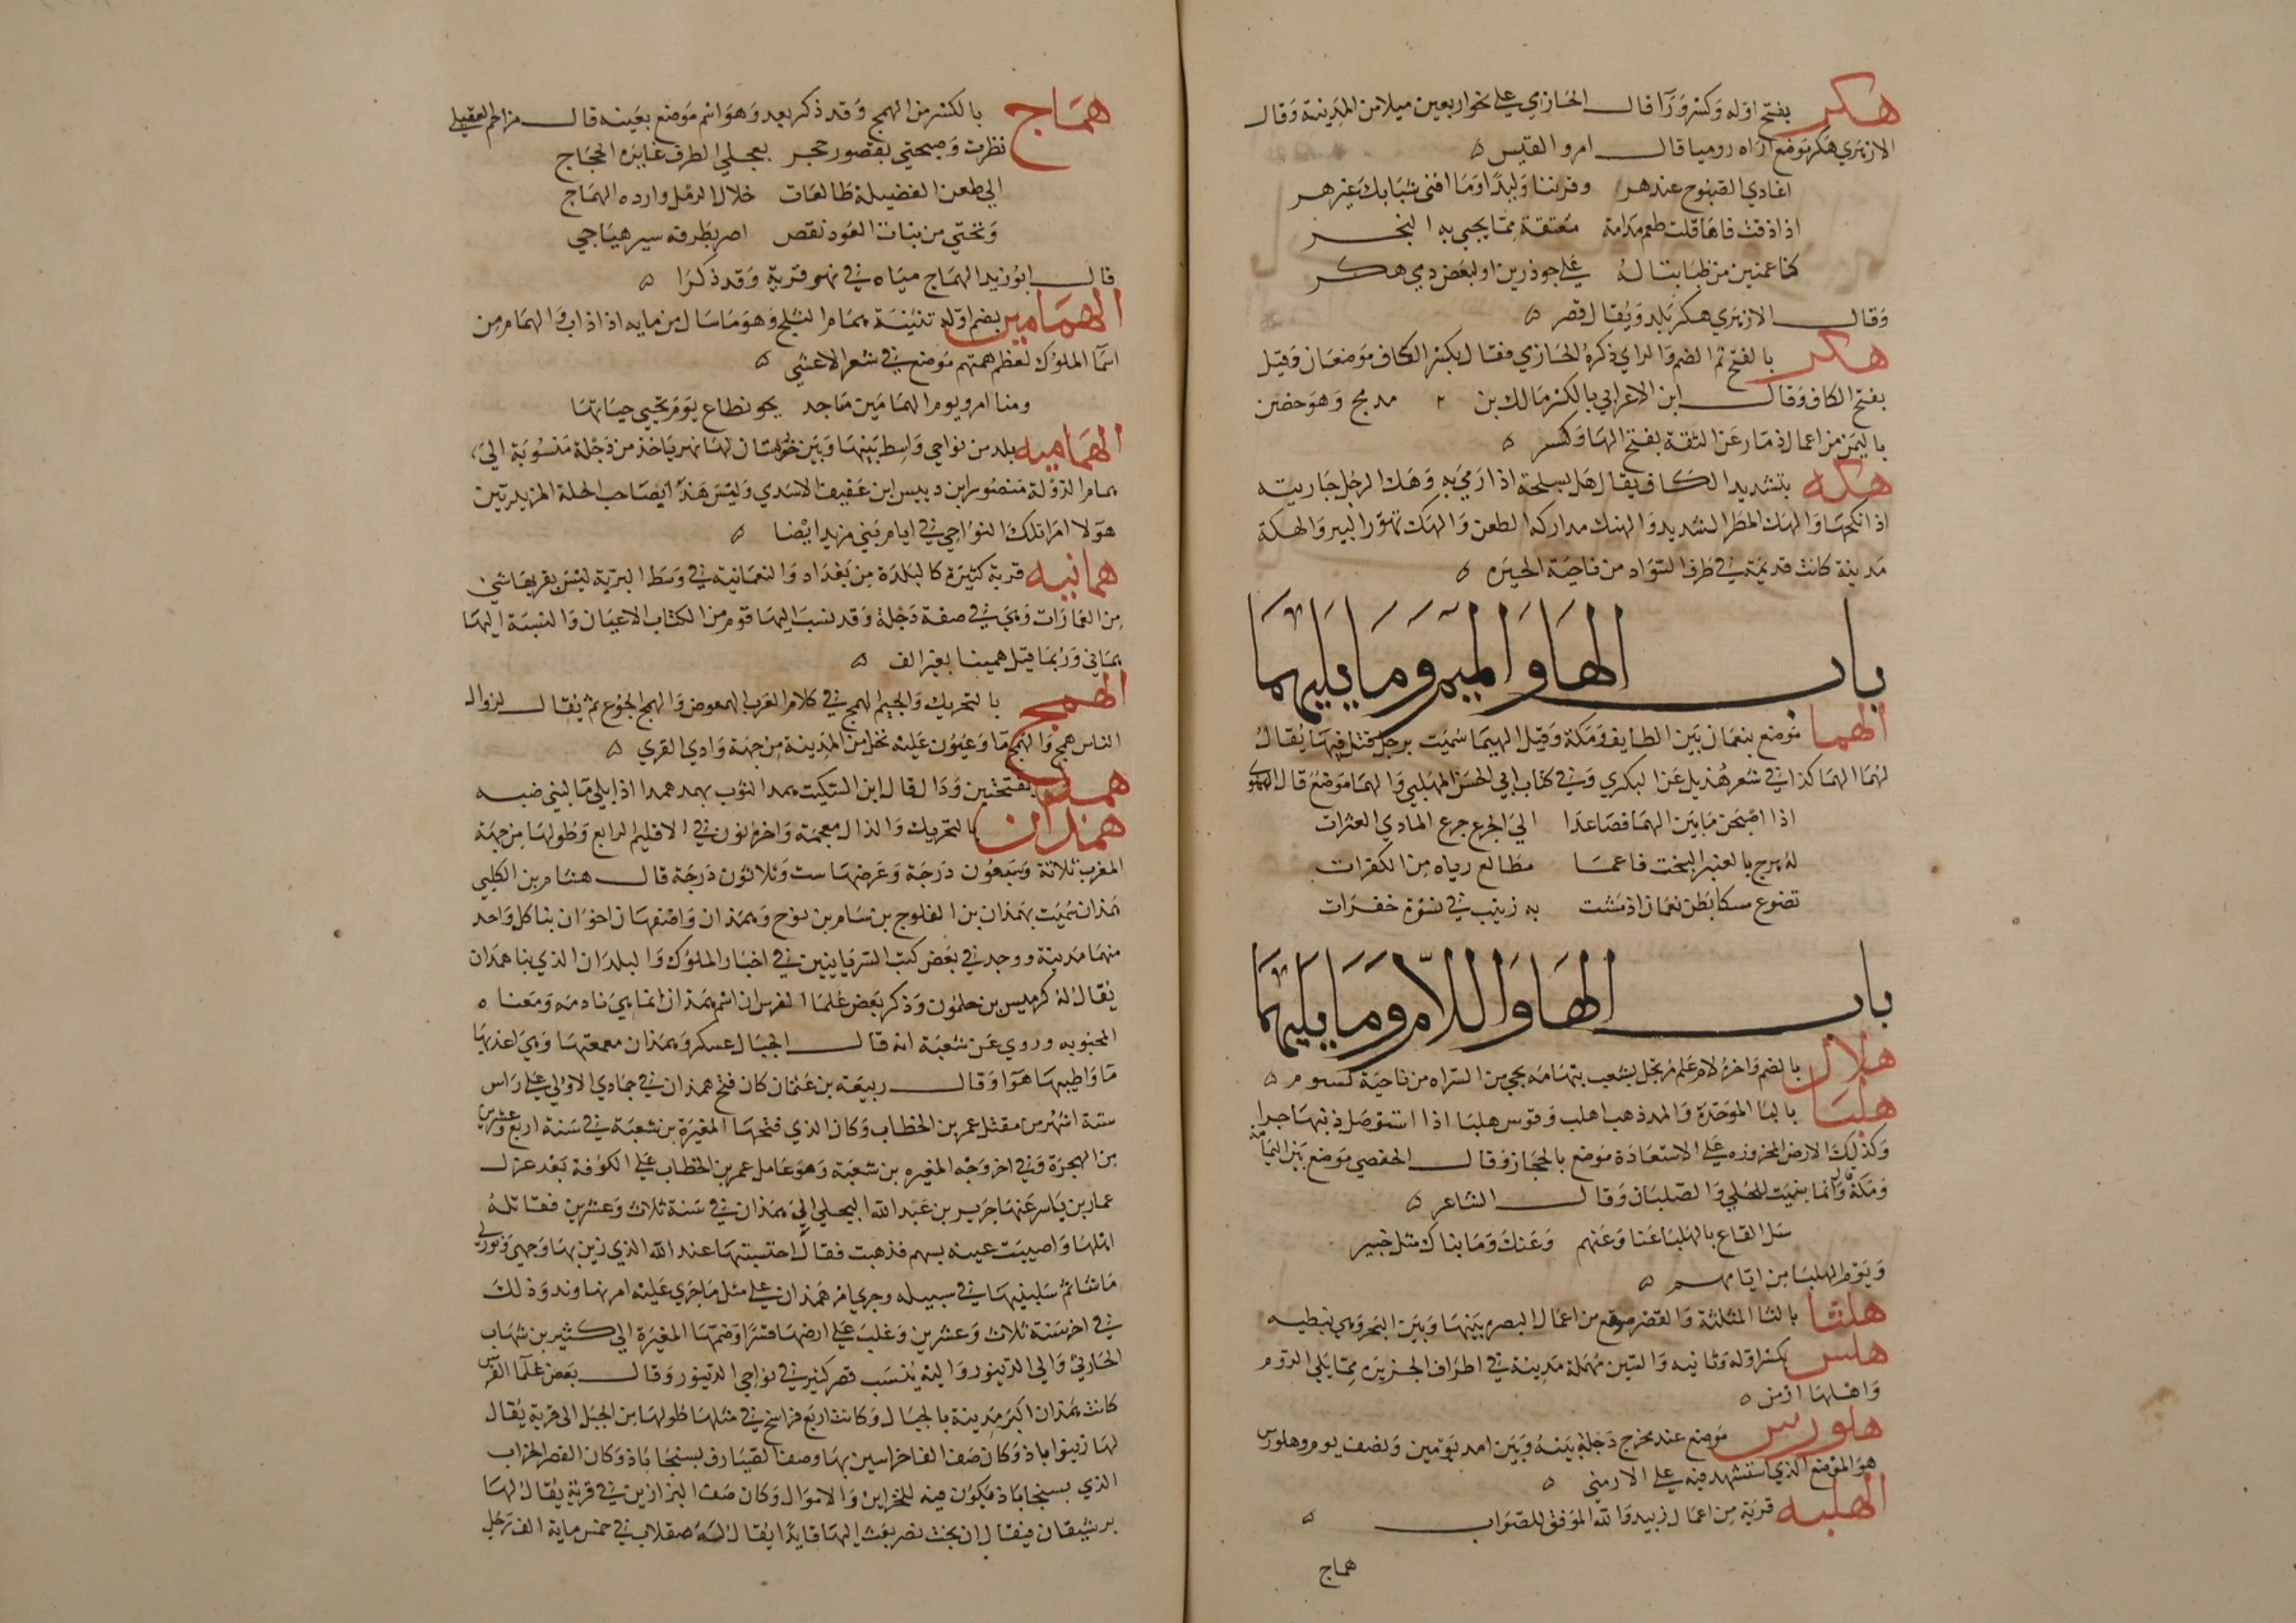 هكر بفتح اوله وكسر ورا قال الحازمي على نحو اربعين ميلا من المدينة وقال
الازهري هكر موضع اراه روميا قال امرو القيس
اغادي الصبوح عند هر وفرتنا وليدا وما افنى شبابك غير هر
اذا ذقت فاها قلت طعم مدامة معتقة مما يجيى به التجر
كناعمتين من ظبا بتالة على جوذرين او لبعض دمي هكر
وقال الازهري هكر بلد ويقال قصر
هكر بالفتح ثم الضم والراي ذكره الحازمي فقال بكسر الكاف موضعان وقيل
بفتح الكاف وقال ابن الاعرابي بالكسر مالك بن مدمج وهو حصن
باليمن من اعمال ذمار عن الثقة بفتح الها وكسر
هكه بتشديد الكاف يقال هك بسلحة اذا رمي به وهك الرجل جاريته
اذا نكحها والهك المطر الشديد والهك مداركه الطعن والهك تهور البير والهكة
مدينة كانت قديمة في طرف السواد من ناحية الحيره
باب الها والميم وما يليهما
الهما موضع بنعمان بين الطايف ومكة وقيل الهيما سميت برجل قتل فيها يقال
لهما الهما كذا في شعر هذيل عن البكري وفي كتاب ابي الحسن المهلبي والهما موضع قال
اذا اصبحن ما بين الهما فصاعدا الى الجزع جزع المادي العثرات
له برج بالعنبر البحت فاعما مطالع رياه من الكفرات
تضوع مسكا بطن نعمان اذ مشت به زينب في نسوة خفرات
باب الها واللام وما يليهما
هلال بالضم واخره لام علم مرتجل لشعب بتهامه يجي من السراه من ناحية كسوم
هلبا بالبا الموحدة والمد ذهب اهلب وقوس هلبا اذا استوصل ذنبها جرا
وكذلك الارض المجزوزه على الاستعادة موضع بالحجاز وقال الحفصي موضع بين اليمامة
ومكة وانما سميت للحلي والصلبان وقال الشاعر
سل القاع بالهلبا عنا وعنهم وعنك وما بناك مثل خبير
ويوم الهلبا من ايامهم
هلثا بالثا المثلثة والقصر صقع من اعمال البصره بينها وبين البحر وهي نبطيه
هلس بكسر اوله وثانيه والسين مهملة مدينة في اطراف الجزيره مما يلي الروم
واهلها ارمن
هلورس موضع عند مخرج دجلة بينه وبين امد يومين ونصف يوم وهلورس
هو الموضع الذي استشهد فيه على الارمني
الهلبه قرية من اعمال زبيد والله الموفق للصواب
هماج
هماج بالكسر من الهمج وقد ذكر بعد وهو اسم موضع بعينه قال مزاحم العقيلي
نظرت وصحبتي بقصور حجر بعجلي الطرف غايره الحجاج
الى ظعن الفضيلة طالعات خلال الرمل وارده الهماج
وتحتي من بنات العود نقص اضر بطرقه سير هياجي
قال ابو زيد الهماج مياه في نهي تربة وقد ذكرا
الهمامين بضم اوله تثنية همام الثلج وهو ما سال من مايه اذا ذاب والهمام من
اسما الملوك لعظم همتهم موضع في شعر الاعشى
ومنا امرو يوم الهمامين ماجد بجو نطاع يوم تجني جناتها
الهماميه بلد من نواحي واسط بينها وبين خوزستان لها نهر ياخذ من دجلة منسوبة الى
همام الدولة منصور ابن دبيس ابن عفيف الاسدي وليس هذا ايضا صاحب الحلة المزيدية بين
هولا امرا تلك النواحي في ايام بني مزيد ايضا
همانيه قرية كبيرة كالبلدة من بغداد والنعمانية في وسط البرية ليس بقربها شي
من العمارات وهي في صفة دجلة وقد نسب اليها قوم من الكتاب الاعيان والنسبة اليها
هماني وربما قيل همينا بغير الف
الهمج بالتحريك والجيم الهمج في كلام العرب البعوض والهمج الجوع ثم يقال لرذال
الناس همج والهمج ما وعيون عليه نخل من المدينة من جهة وادي القرى
همد بفتحتين ودال قال ابن السكيت همد الثوب يهمد همدا اذا بلي ما لبني ضبه
همذان بالتحريك والذال معجمة واخره نون في الاقليم الرابع وطولها من جهة
المغرب ثلاثة وسبعون درجة وعرضها ست وثلاثون درجة قال هشام بن الكلبي
همذان سميت بهمذان بن الفلوج بن سام بن نوح وهمذان واصفهان اخوان بنا كل واحد
منهما مدينة ووجد في بعض كتب السريانيين في اخبار الملوك والبلدان الذي بنا همذان
يقال له كرميس بن حلمون وذكر بعض علما الفرس ان اسم همذان انما هي نادمه ومعناه
المحبوبه وروي عن شعبة انه قال الجبال عسكر وهمذان معمعتها وهي اعذبها
ما واطيبها هوا وقال ربيعه بن عثمان كان فتح همذان في جمادي الاولى على راس
ستة اشهر من مقتل عمر بن الخطاب وكان الذي فتحها المغيرة بن شعبة في سنة اربع وعشرين
من الهجرة وفي اخر وجه المغيره بن شعبة وهو عامل عمر بن الخطاب على الكوفة بعد عزل
عمار بن ياسر عنها جرير بن عبد الله البجلي الى همذان في سنة ثلاث وعشرين فقاتله
اهلها واصيبت عينه بسهم فذهبت فقال احتسبتها عند الله الذي زين بها وجهي ونور لي
ما شا ثم سلبنيها في سبيله وجرى امر همذان على مثل ما جرى عليه امر نهاوند وذلك
في اخر سنة ثلاث وعشرين وغلب على ارضها قسرا وضمها المغيرة الى كثير بن شهاب
الحارثي والى الدينور واليه ينسب قصر كثير في نواحي الدينور وقال بعض علما الفرس
كانت همذان اكبر مدينة بالجبال وكانت اربع فراسخ في مثلها طولها من الجبل الى قرية يقال
لها زينواباذ وكان صف الفاخراسين بها وصف الصيارف بسنجاباذ وكان القصر الخراب
الذي بسنجاباذ يكون فيه للخزاين والاموال وكان صف البزازين في قرية يقال لها
برشيقان فيقال ان بخت نصر بعث اليها قايدا يقال له صقلاب في خمس ماية الف رجل